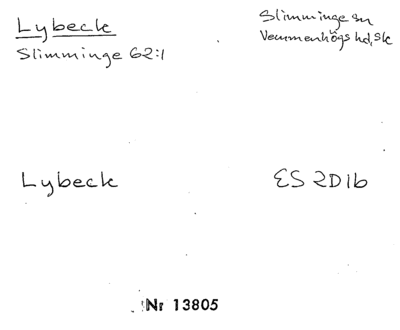 Lybeck
Slimminge 62:1
Slimminge sn
Vemmenhögs hd, Sk
Lybeck
ES 2D1b
Nr 13805